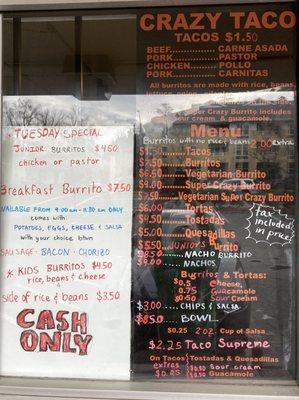 CRAZY TACO
TACOS $1.50
BEEF............ CARNE ASADA
PORK............ PASTOR
CHICKEN............ POLLO
PORK............ CARNITAS
All burritos are made with rice, beans
Super Crazy Burrito includes
sour cream & guacamole.
Menu
Burritos with no rice/beans 2.00 extra
Tacos
Burritos
Vegetarian Burrito
Super Crazy Burrito
Vegetarian Super Crazy Burrito
Tortas
Tostadas
Quesadillas
$5.50 JUNIORS BURRITO
NACHO BURRITO
NACHOS
(tax included in price)
Burritos & Tortas:
Cheese
0.75 Guacamole
Sour Cream
$3.00 CHIPS & SALSA
BOWL
$0.25 2oz. Cup of Salsa
$2.25 Taco Supreme
On Tacos Tostadas & Quesadillas
extras sour cream
Guacamole
TUESDAY SPECIAL
JUNIOR BURRITOS $4.50
chicken or pastor
Breakfast Burrito $7.50
VAILABLE FROM 9:00 am - 11:30 am ONLY
comes with:
POTATOES, EGGS, CHEESE & SALSA
with your choice btwn
SAUSAGE - BACON - CHORIZO
* KIDS BURRITOS $4.50
rice, beans & cheese
side of rice & beans $3.50
CASH
ONLY